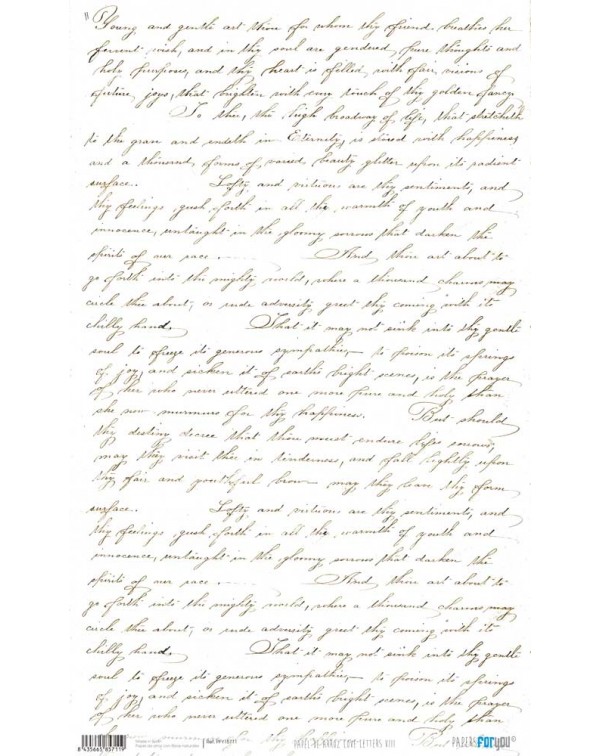 "Young and gentle art thou for whom thy friend breathes her
fervent wish, and in thy soul are gendered, pure thoughts and
holy purpose, and thy heart is filled, with fair visions of
future, joys, that brighten with every touch of thy golden fancy.
To thee, the high broadway of life, that stretcheth
to the grave and endeth in Eternity, is stored with happiness
and a thousand, forms of varied, beauty glitter upon its radiant
surface. Lofty, and virtuous are thy sentiments, and
thy feelings gush forth in all the, warmth of youth and
innocence, untaught in the gloomy sorrows that darken the
spirits of our race .... And, thou art about to
go forth into the mighty world, where a thousand charms may
circle thee about, or rude adversity greet thy coming with its
chilly hand. That it may not sink into thy gentle
soul to freeze its generous sympathies, to poison its springs
of joy, and sicken it of earth's bright scenes, is the prayer
of her who never uttered one more pure and holy than
she now murmurs for thy happiness. But should
thy destiny decree that thou must endure life's sorrows,
may they visit thee in tenderness, and fall lightly upon
thy fair and youthful brow may they leave thy form
surface. Lofty, and virtuous are thy sentiments, and
thy feelings gush forth in all the, warmth of youth and
innocence, untaught in the gloomy sorrows that darken the
spirits of our race .... And, thou art about to
go forth into the mighty world, where a thousand charms may
circle thee about, or rude adversity greet thy coming with its
chilly hand. That it may not sink into thy gentle
soul to freeze its generous sympathies, to poison its springs
of joy, and sicken it of earth's bright scenes, is the prayer
of her who never uttered one more pure and holy than
But should
8 435661 857119
PAPEL DE ARROZ LOVE LETTERS VIII
PAPERS FOR you